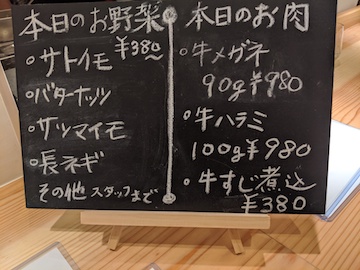 本日のお野菜
¥380〜
・サトイモ
・バターナッツ
・サツマイモ
・長ネギ
その他 スタッフまで
本日のお肉
・牛メガネ
90g¥980
・牛ハラミ
100g¥980
・牛すじ煮込
¥380